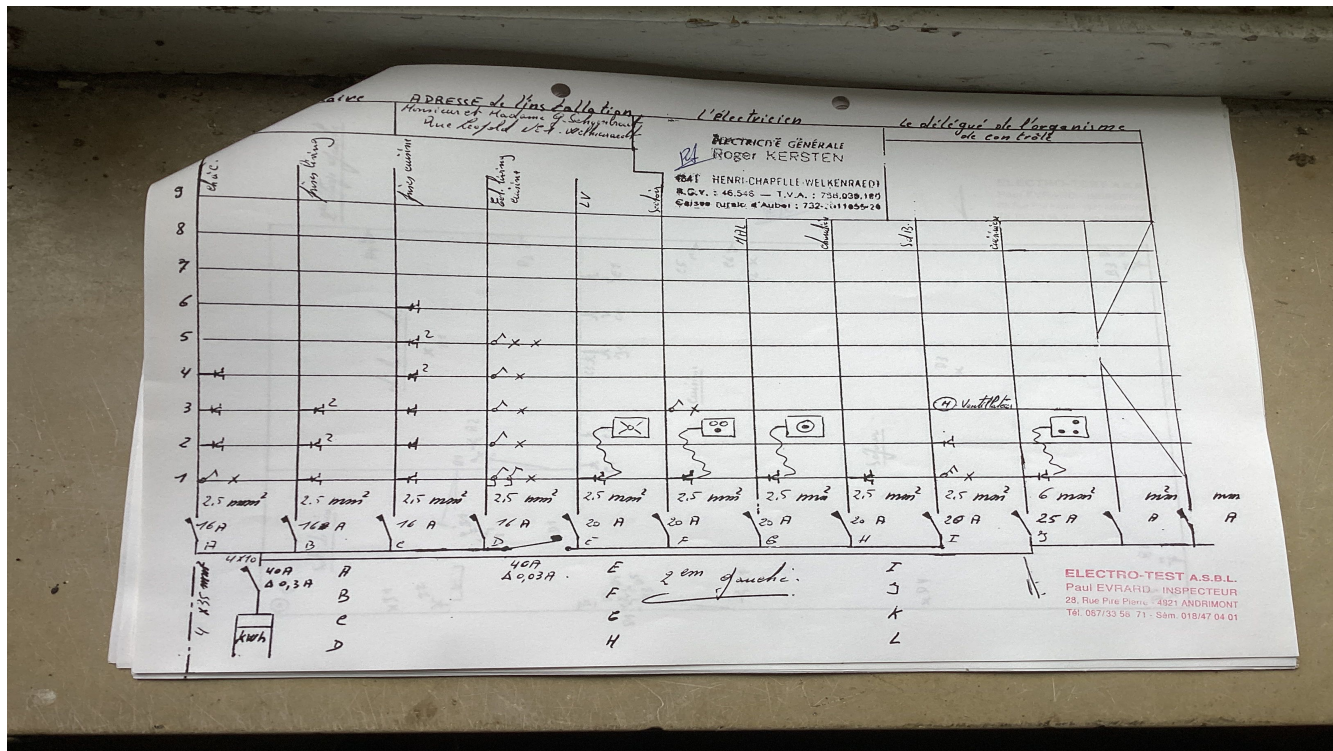 ADRESSE de l'installation
Monsieur et Madame G.
Rue Léopold
L'électricien
ELECTRICITÉ GÉNÉRALE
Roger KERSTEN
4841 HENRI-CHAPELLE-WELKENRAEDT
R.G.V. : 46.546 — T.V.A. : 756.039.180
Caisse rurale d'Aubel : 732-
Le délégué de l'organisme
de contrôle
prises living
prises cuisine
Ecl. living
cuisine
LV
MAL
SdB
9
8
7
6
5 2 x x
4 2 x
3 2 x x M Ventilateur
2 2 x
1 x x x
2,5 mm² 2,5 mm² 2,5 mm² 2,5 mm² 2,5 mm² 2,5 mm² 2,5 mm² 2,5 mm² 2,5 mm² 6 mm² mm² mm
16 A 16 A 16 A 16 A 20 A 20 A 20 A 20 A 20 A 25 A A A
A B C D E F G H I J
4x10
40A
Δ 0,3 A
40A
Δ 0,03A
A
B
C
D
E
F
G
H
2em gauche.
I
J
K
L
4 x 35 mm²
kWh
ELECTRO-TEST A.S.B.L.
Paul EVRARD - INSPECTEUR
28, Rue Pire Pierre - 4821 ANDRIMONT
Tél. 087/33 56 71 - Sém. 018/47 04 01